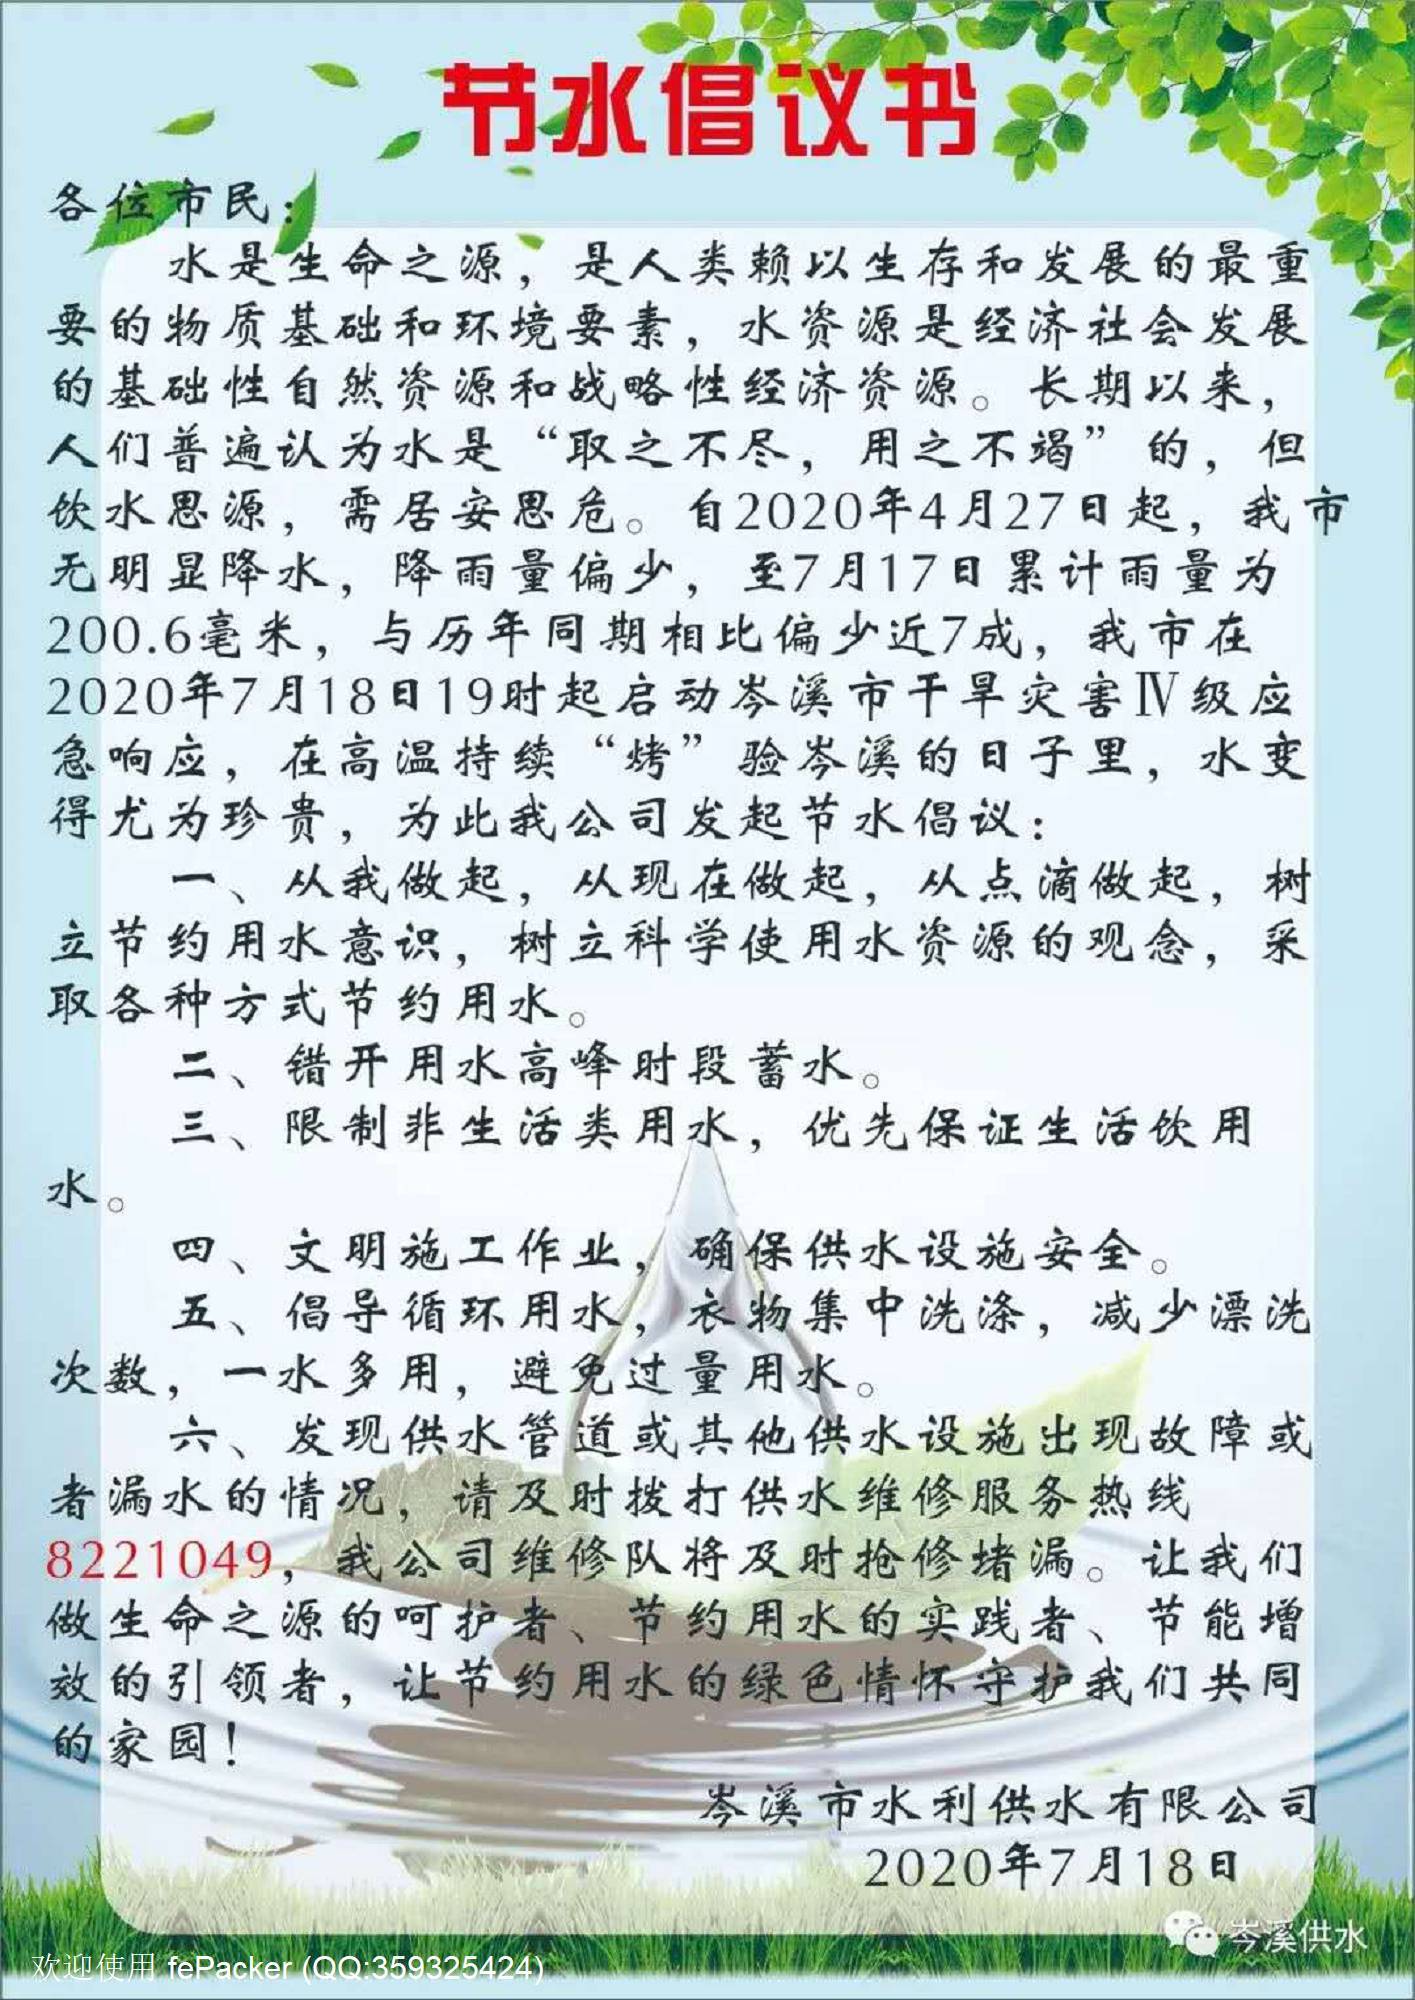 节水倡议书
各位市民：
水是生命之源，是人类赖以生存和发展的最重
要的物质基础和环境要素，水资源是经济社会发展
的基础性自然资源和战略性经济资源。长期以来，
人们普遍认为水是“取之不尽，用之不竭”的，但
饮水思源，需居安思危。自2020年4月27日起，我市
无明显降水，降雨量偏少，至7月17日累计雨量为
200.6毫米，与历年同期相比偏少近7成，我市在
2020年7月18日19时起启动岑溪市干旱灾害Ⅳ级应
急响应，在高温持续“烤”验岑溪的日子里，水变
得尤为珍贵，为此我公司发起节水倡议：
一、从我做起，从现在做起，从点滴做起，树
立节约用水意识，树立科学使用水资源的观念，采
取各种方式节约用水。
二、错开用水高峰时段蓄水。
三、限制非生活类用水，优先保证生活饮用
水。
四、文明施工作业，确保供水设施安全。
五、倡导循环用水，衣物集中洗涤，减少漂洗
次数，一水多用，避免过量用水。
六、发现供水管道或其他供水设施出现故障或
者漏水的情况，请及时拨打供水维修服务热线
8221049，我公司维修队将及时抢修堵漏。让我们
做生命之源的呵护者、节约用水的实践者、节能增
效的引领者，让节约用水的绿色情怀守护我们共同
的家园！
岑溪市水利供水有限公司
2020年7月18日
岑溪供水
欢迎使用 fePacker (QQ:359325424)